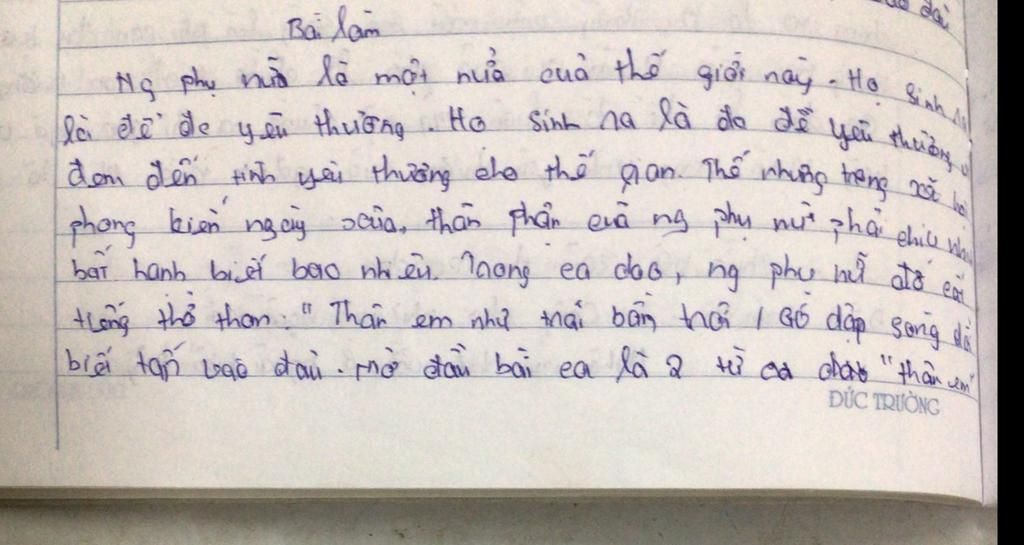 dài
Bài làm
Ng phụ nữ là một nửa của thế giới này. Họ sinh ra
là để đc yêu thương. Họ sinh ra là đã để yêu thương
đem đến tình yêu thương cho thế gian. Thế nhưng trong xã hội
phong kiến ngày xưa, thân phận của ng phụ nữ phải chịu
bất hạnh biết bao nhiêu. Trong ca dao, ng phụ nữ đã cất
tiếng thở than: "Thân em như trái bần trôi / Gó dập sóng dồi
biết tấp vào đâu. Mở đầu bài ca là 2 từ ca dao "thân em"
ĐỨC TRƯỜNG